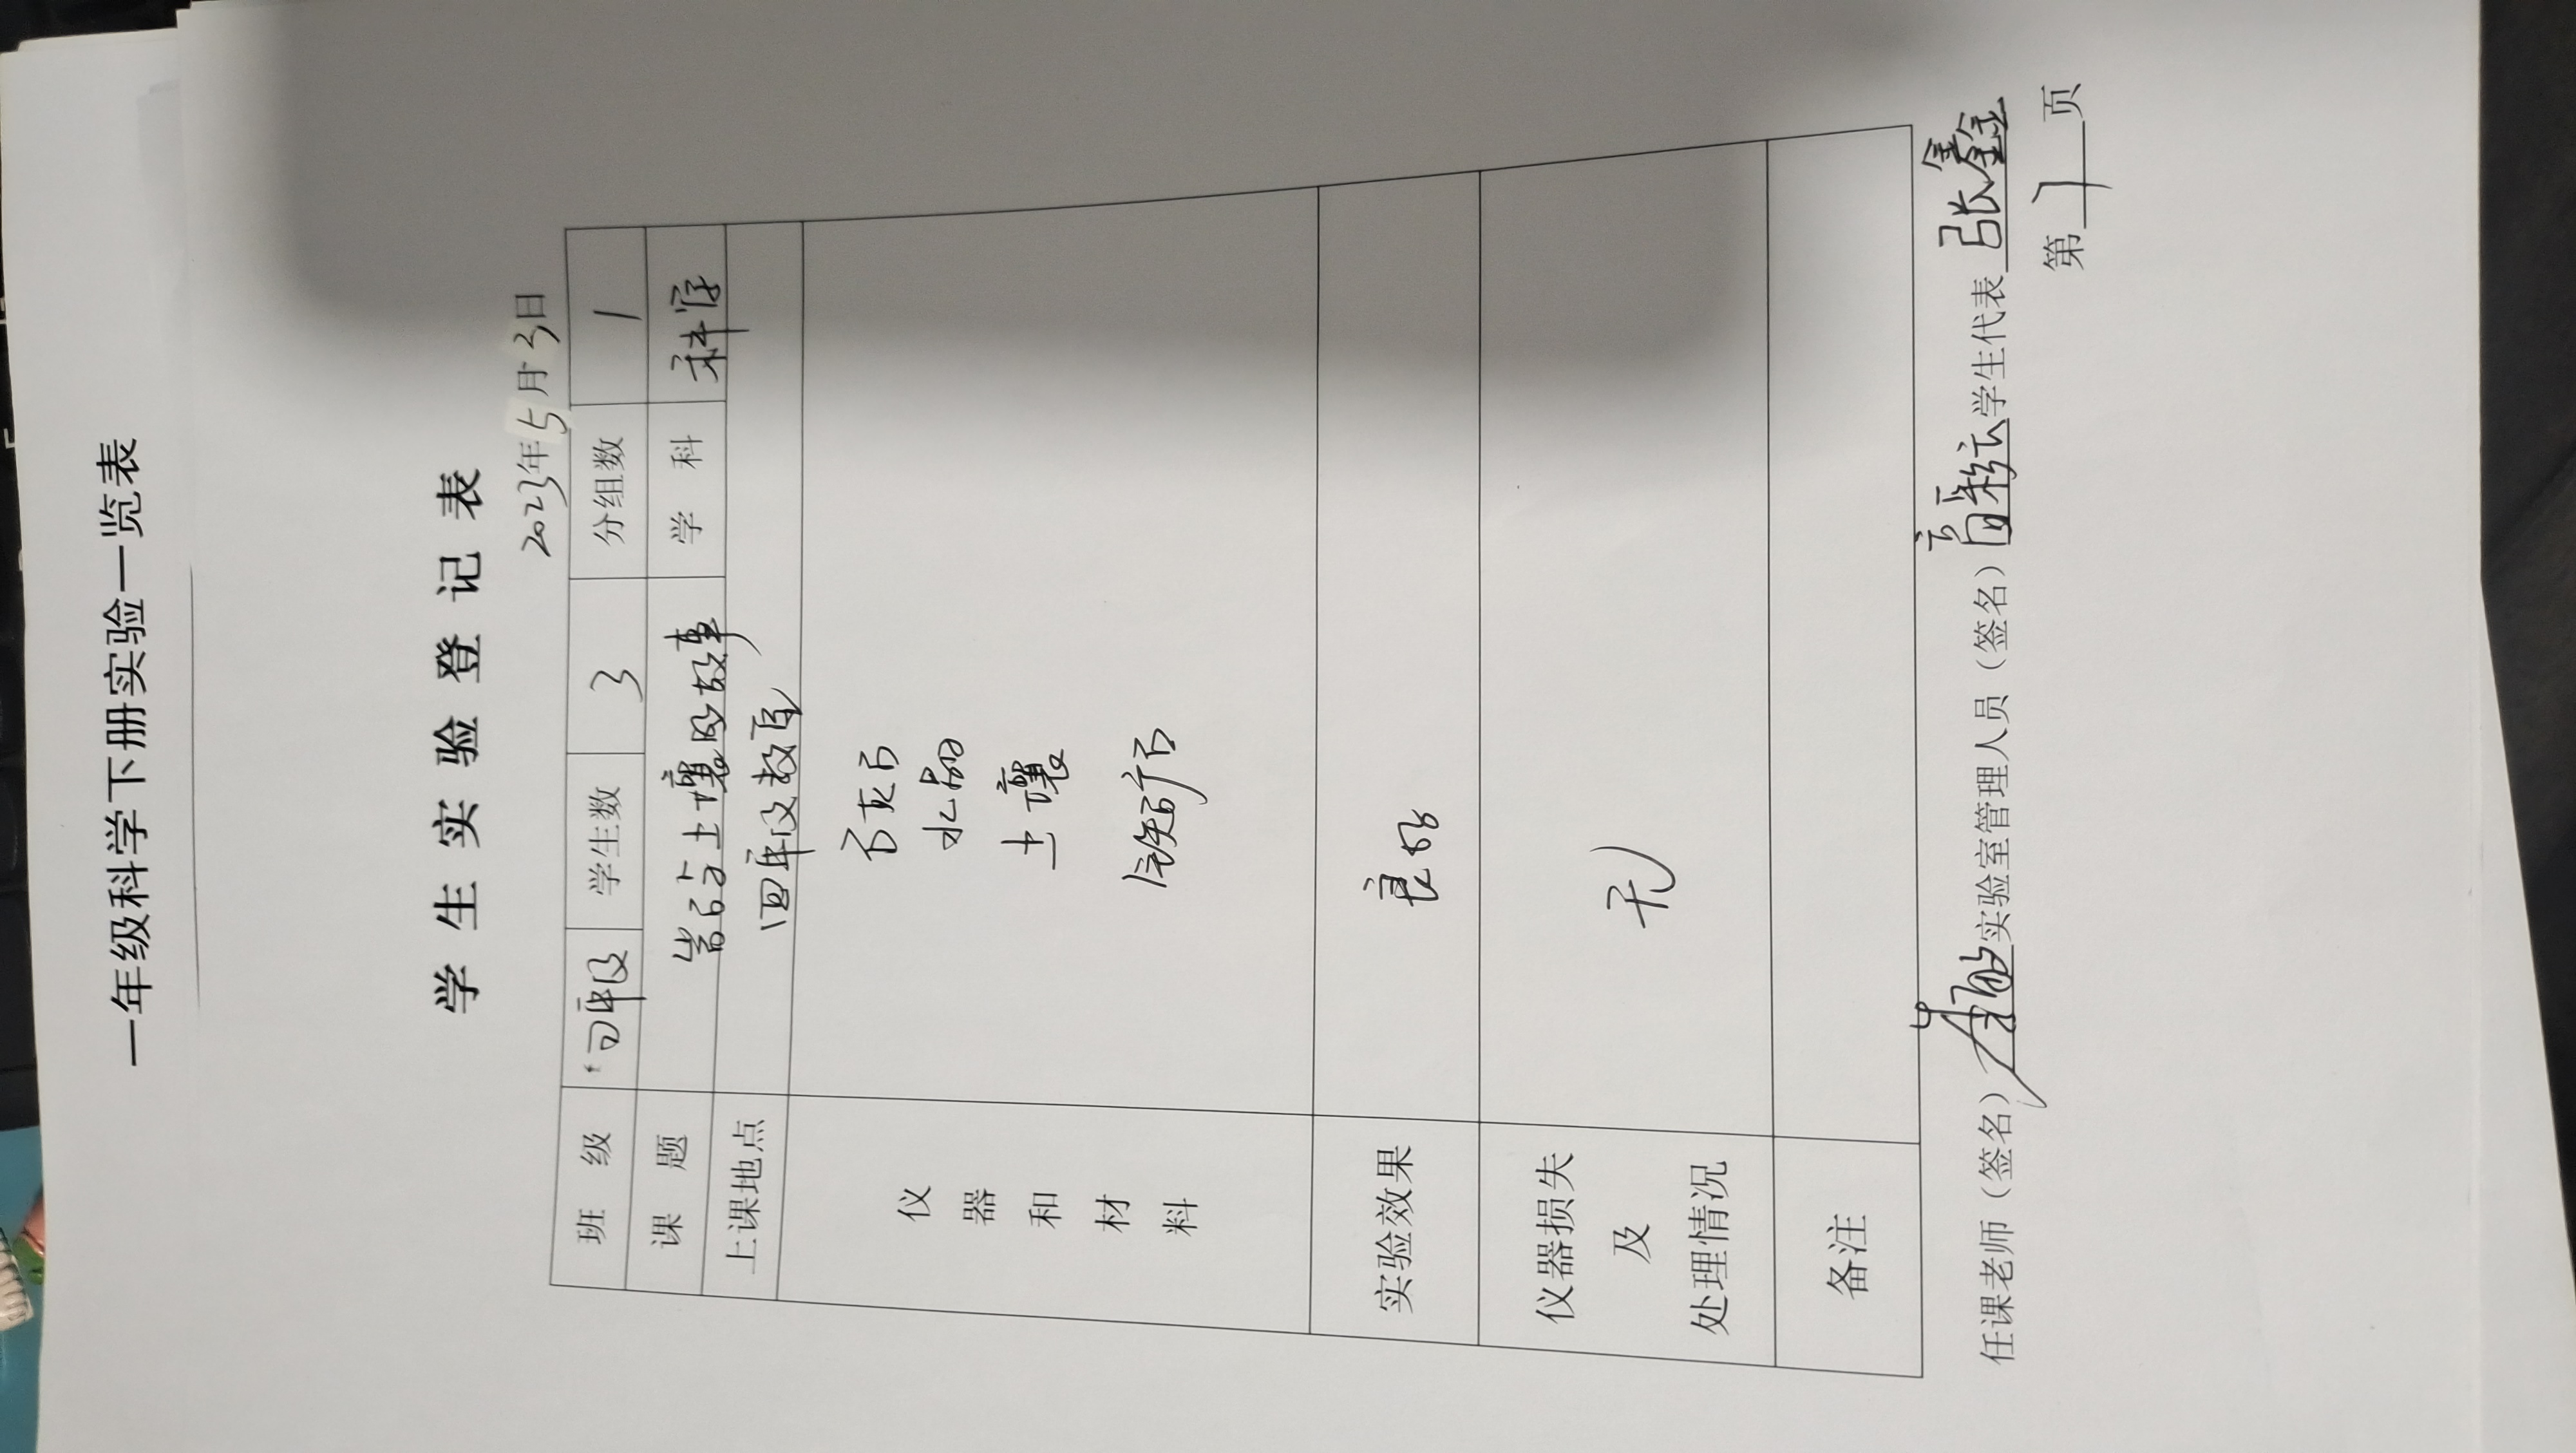 一年级科学下册实验一览表
学生实验登记表
2023年5月3日
班级 四年级 学生数 3 分组数 1
课题 岩石与土壤的故事 学科 科学
上课地点 四年级教室
仪器和材料
石灰石
水晶
土壤
铁矿石
实验效果 良好
仪器损失及处理情况 无
备注
任课老师（签名） 实验室管理人员（签名） 学生代表 张鑫
第 1 页